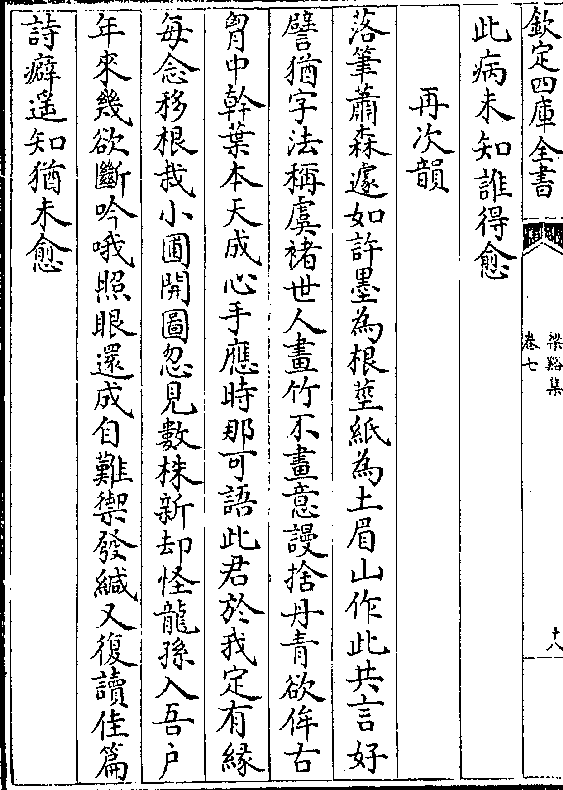 欽定四庫全書
梁谿集
卷七
十八
此病未知誰得愈
再次韻
落筆蕭森遽如許墨為根莖紙為土眉山作此共言好
譬猶字法稱虞褚世人畫竹不畫意謾捨丹青欲侔古
胷中幹葉本天成心手應時那可語此君於我定有緣
每念移根栽小圃開圖忽見數株新却怪龍孫入吾户
年來幾欲斷吟哦照眼還成自難禦發緘又復讀佳篇
詩癖遥知猶未愈